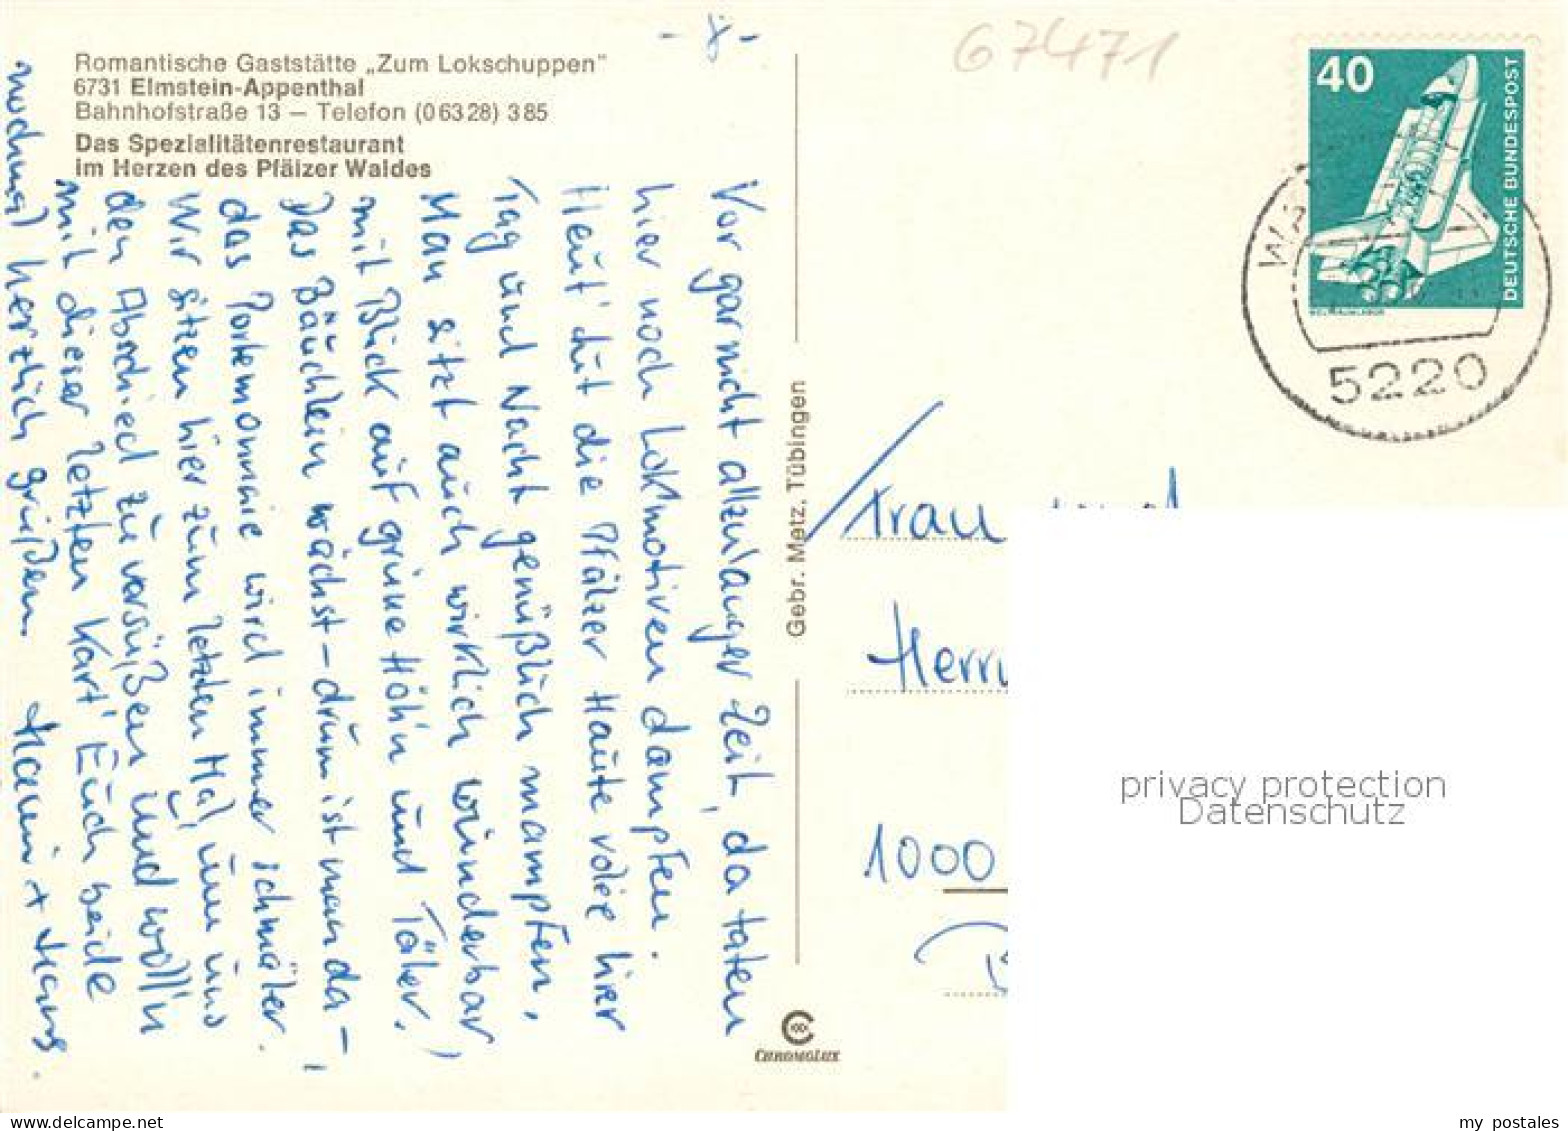 Romantische Gaststätte „Zum Lokschuppen“
6731 Elmstein-Appenthal
Bahnhofstraße 13 — Telefon (06328) 385
Das Spezialitätenrestaurant
im Herzen des Pfälzer Waldes
Vor gar nicht allzulanger Zeit, da taten
hier noch Lok'motiven dampfen.
Heut' tut die Pfälzer Haute volée hier
Tag und Nacht genüßlich mampfen,
Man sitzt auch wirklich wunderbar,
mit Blick auf grüne Höh'n und Täler.
Das Bäuchlein wächst – drum ist man da –,
das Portemonnaie wird immer schmäler.
Wir sitzen hier zum letzten Mal, um uns
den Abschied zu versüßen und woll'n
mit dieser letzten Kart' Euch beide
nochmal herzlich grüßen. + Hans.
Gebr. Metz, Tübingen
CHROMOLUX
67471
40
DEUTSCHE BUNDESPOST
WELTRAUMLABOR
5220
Frau
Herrn
1000
privacy protection
Datenschutz
my postales